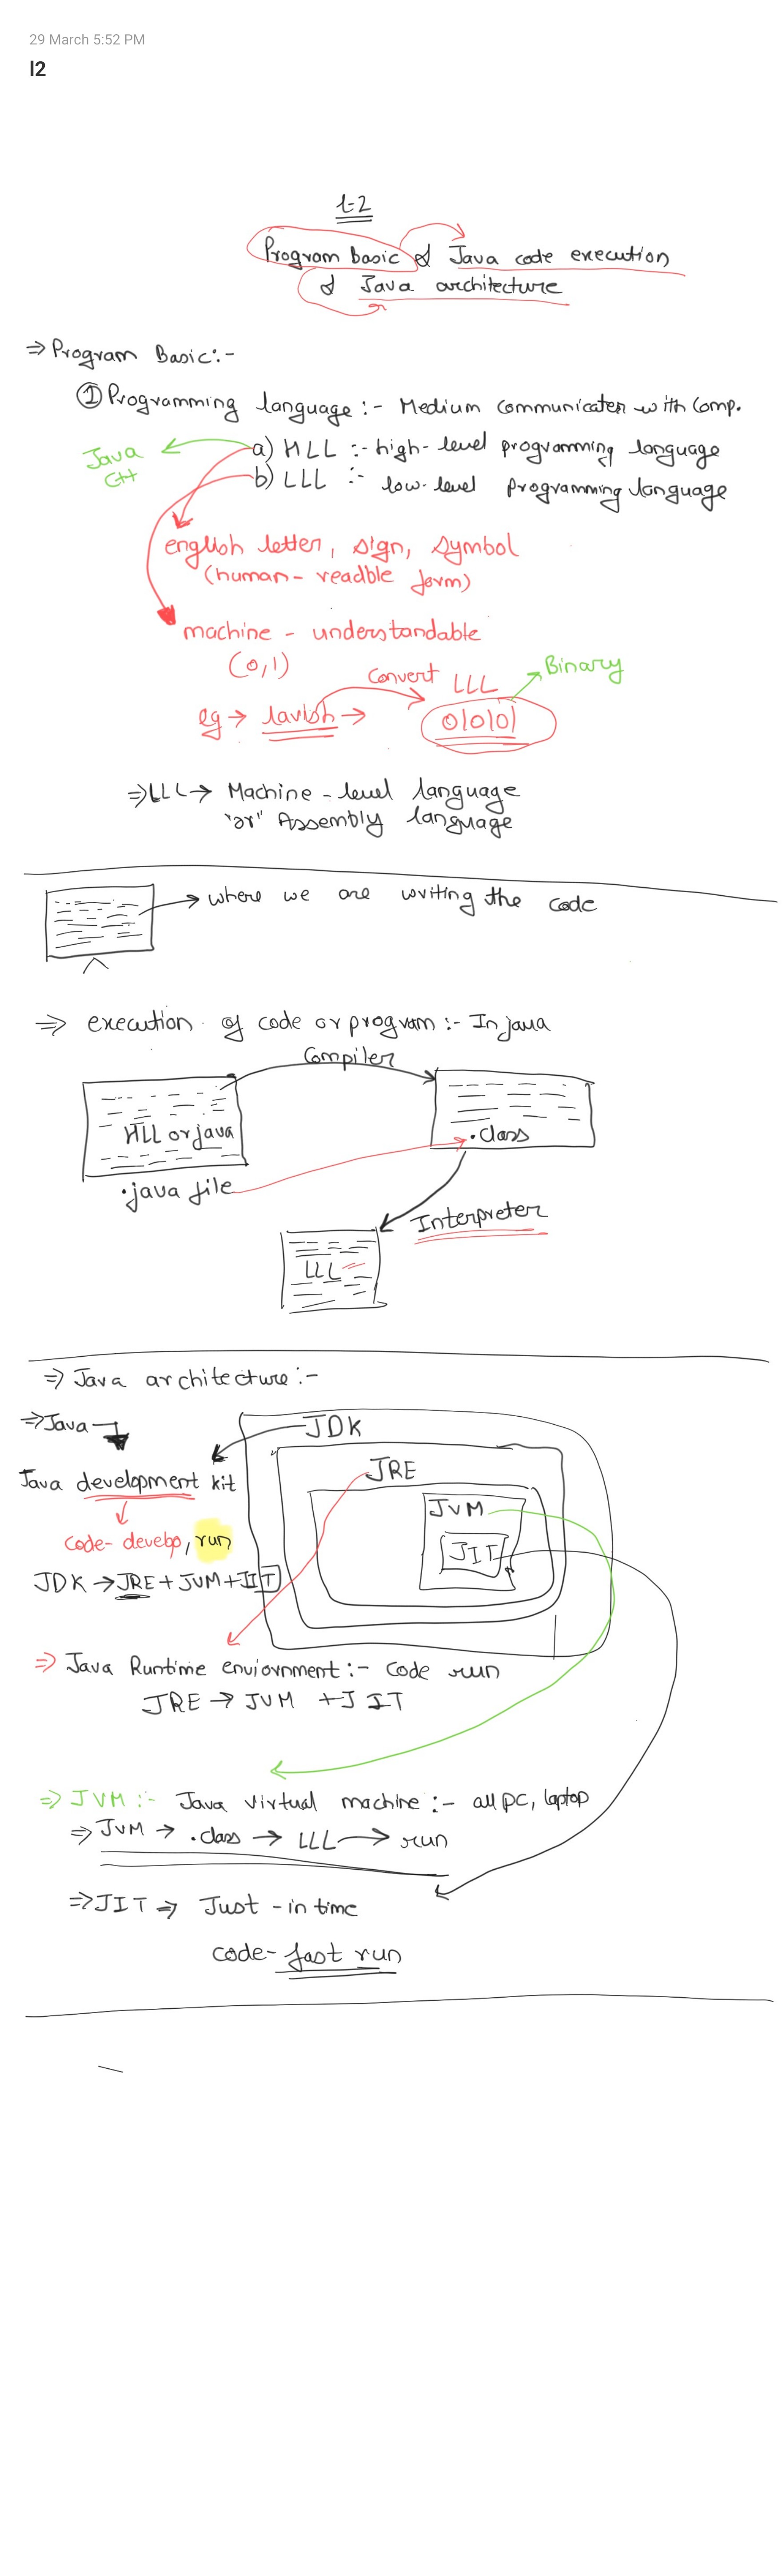 29 March 5:52 PM
l2
L-2
Program basic & Java code execution
& Java architecture
⇒ Program Basic:-
① Programming language :- Medium communicaten with Comp.
a) HLL :- high-level programming language
Java
C++
b) LLL :- low-level programming language
english letter, sign, symbol
(human-readble form)
machine - understandable
(0,1)
Convert LLL Binary
eg → lavish → 010101
⇒ LLL → Machine-level language
"or" Assembly language
where we are writing the code
⇒ execution of code or program :- In java
Compiler
HLL or java
.class
.java file
Interpreter
LLL
⇒ Java architecture :-
⇒ Java
JDK
JRE
Java development kit
JVM
code-develop, run
JIT
JDK → JRE + JVM + JIT
⇒ Java Runtime enviornment :- Code run
JRE → JVM + JIT
⇒ JVM :- Java virtual machine :- all PC, laptop
⇒ JVM → .class → LLL → run
⇒ JIT ⇒ Just-in time
code-fast run